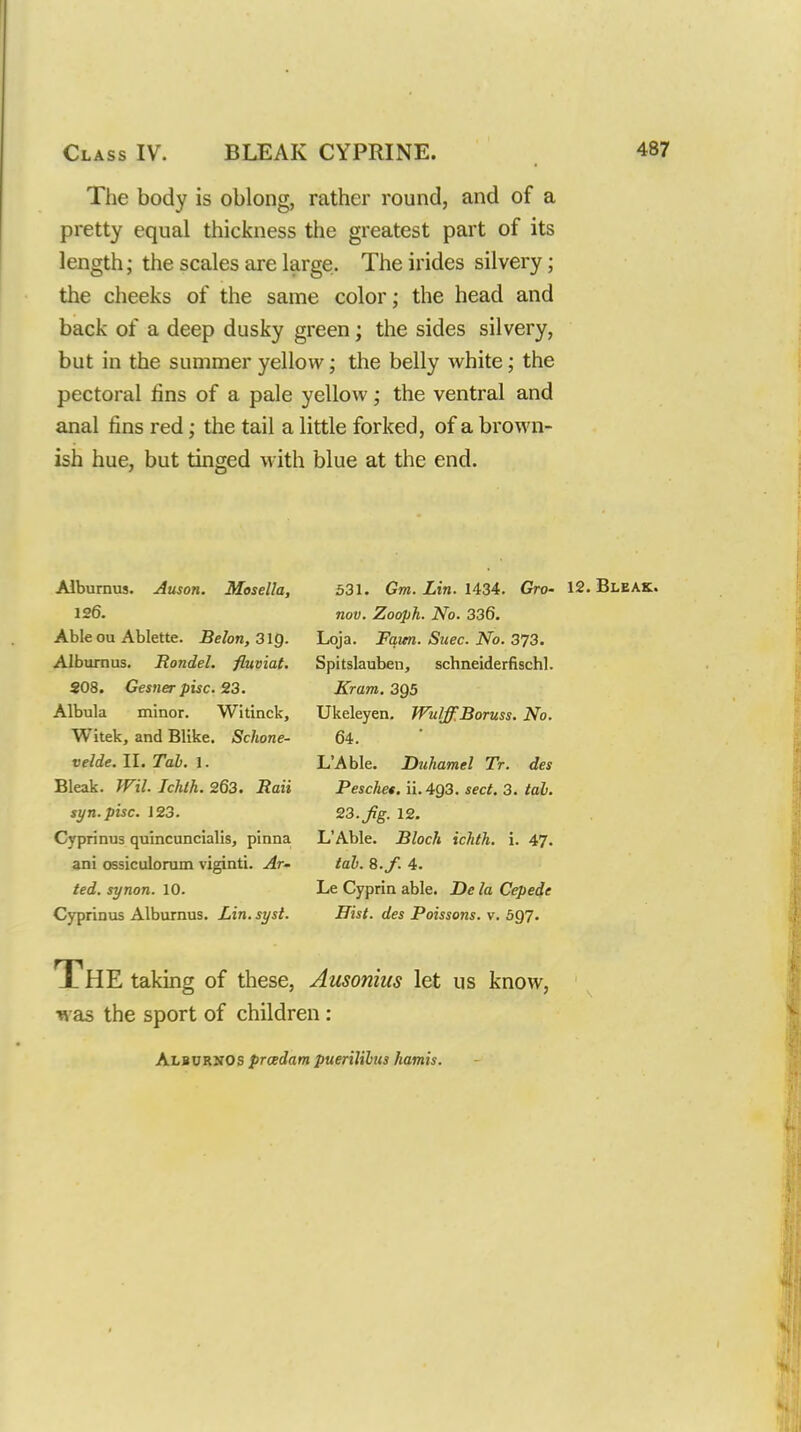 Class IV. BLEAK CYPRINE. 487
The body is oblong, rather round, and of a
pretty equal thickness the greatest part of its
length; the scales are large. The irides silvery;
the cheeks of the same color; the head and
back of a deep dusky green; the sides silvery,
but in the summer yellow; the belly white; the
pectoral fins of a pale yellow; the ventral and
anal fins red; the tail a little forked, of a brown-
ish hue, but tinged with blue at the end.
Alburnus. Auson. Mosella,
126.
Able ou Ablette. Belon, 319.
Alburnus. Rondel. fluviat.
208. Gesner pisc. 23.
Albula minor. Witinck,
Witek, and Blike. Schone-
velde. II. Tab. 1.
Bleak. Wil. Ichth. 263. Raii
syn. pisc. 123.
Cyprinus quincuncialis, pinna
ani ossiculorum viginti. Ar-
ted. synon. 10.
Cyprinus Alburnus. Lin. syst.
531. Gm. Lin. 1434. Gro-
nov. Zooph. No. 336.
Loja. Faun. Suec. No. 373.
Spitslauben, schneiderfischl.
Kram. 395
Ukeleyen. Wulff. Boruss. No.
64.
L'Able. Duhamel Tr. des
Pesches. ii. 493. sect. 3. tab.
23. fig. 12.
L'Able. Bloch ichth. i. 47.
tab. 8. f. 4.
Le Cyprin able. De la Cepede
Hist. des Poissons. v. 597.
12. Bleak.
THE taking of these, Ausonius let us know,
was the sport of children:
Alburnos prædam puerilibus hamis.